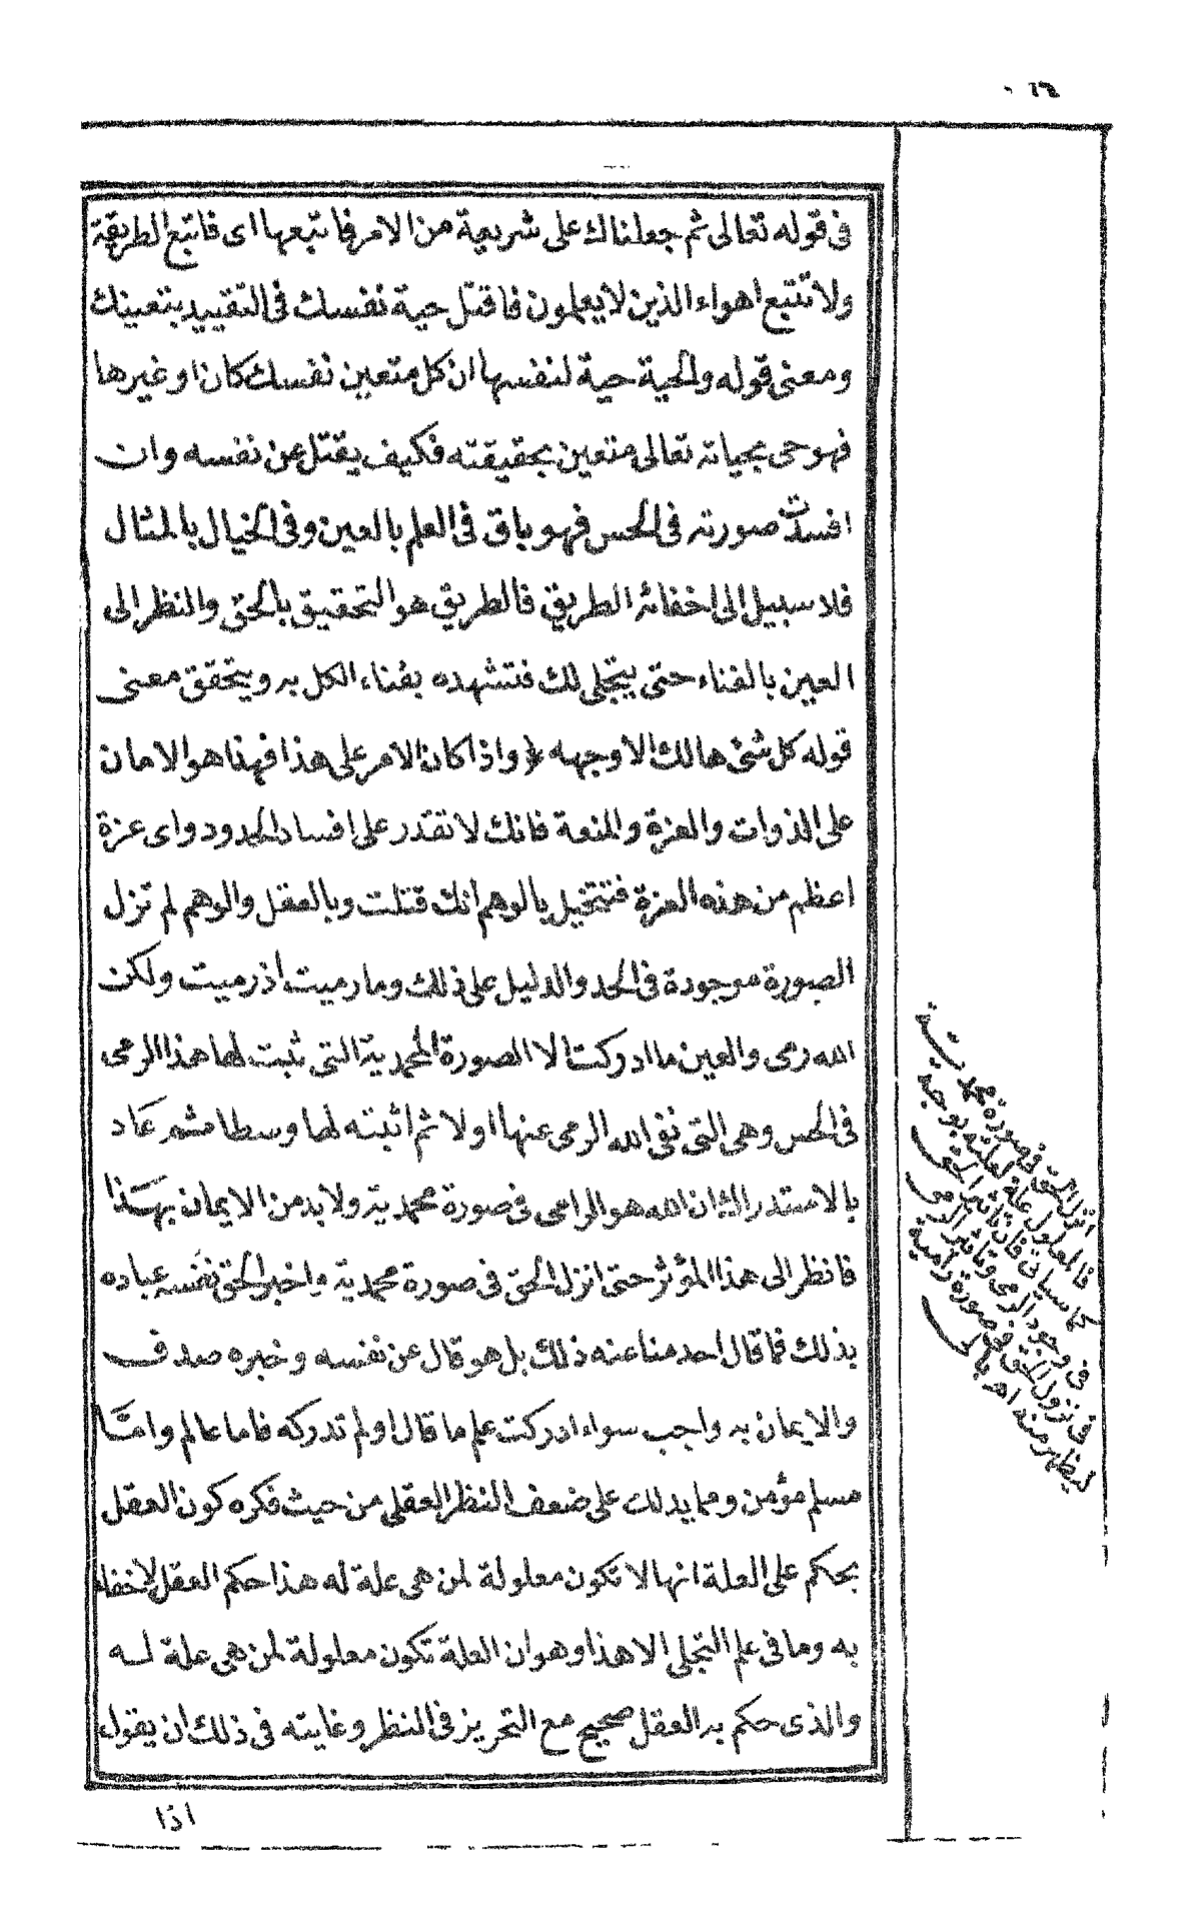 في قوله تعالى ثم جعلناك على شريعة من الامر فاتبعها اى فاتبع الطريقة
ولا تتبع اهواء الذين لا يعلمون فاقتل حية نفسك فى التقييد بتعينك
ومعنى قوله والحية حية لنفسها ان كل متعين نفسك كان او غيرها
فهو حى بحياته تعالى متعين بحقيقته فكيف يقتل عن نفسه وان
افسدت صورته فى الحس فهو باق فى العلم بالعين وفى الخيال بالمثال
فلا سبيل الى اخفائه الطريق فالطريق هو التحقيق بالحق والنظر الى
العين بالفناء حتى يتجلى لك فتشهده بفناء الكل به ويتحقق معنى
قوله كل شئ هالك الا وجهه ﴿ واذا كان الامر على هذا فهذا هو الامان
على الذوات والعزة والمنعة فانك لا تقدر على افساد الحدود واى عزة
اعظم من هذه العزة فتتخيل بالوهم انك قتلت وبالعقل والوهم لم تزل
الصورة موجودة فى الحد والدليل على ذلك وما رميت اذ رميت ولكن
الله رمى والعين ما ادركت الا الصورة المحمدية التى ثبت لها هذا الرمى
فى الحس وهى التى نفى الله الرمى عنها اولا ثم اثبته لها وسطا ثم عاد
بالاستدراك ان الله هو الرامى فى صورة محمدية ولا بد من الايمان بهذا
فانظر الى هذا المؤثر حتى انزل الحق فى صورة محمدية واخبر الحق نفسه عباده
بذلك فما قال احد منا عنه ذلك بل هو قال عن نفسه وخبره صدق
والايمان به واجب سواء ادركت علم ما قال او لم تدركه فاما عالم واما
مسلم مؤمن ومما يدلك على ضعف النظر العقلى من حيث فكره كون العقل
يحكم على العلة انها لا تكون معلولة لمن هى علة له هذا حكم العقل لا خفاء
به وما فى علم التجلى الا هذا وهو ان العلة تكون معلولة لمن هى علة له
والذى حكم به العقل صحيح مع التحريز فى النظر وغايته فى ذلك ان يقول
اذا
انزل الحق فى صورة محمدية
فالمعلول علة لعلته بوجه
كما سيأتى فان تأثير الحق
فى وجود الرمى وتأثير الرمى
فى نزول الحق فى صورة رامية
ليظهر منه اهـ بالى